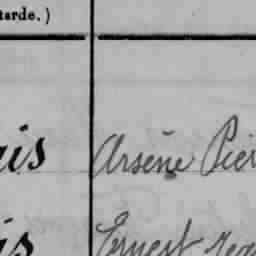 tarde.)
ais Arsène Pier
is Ernest